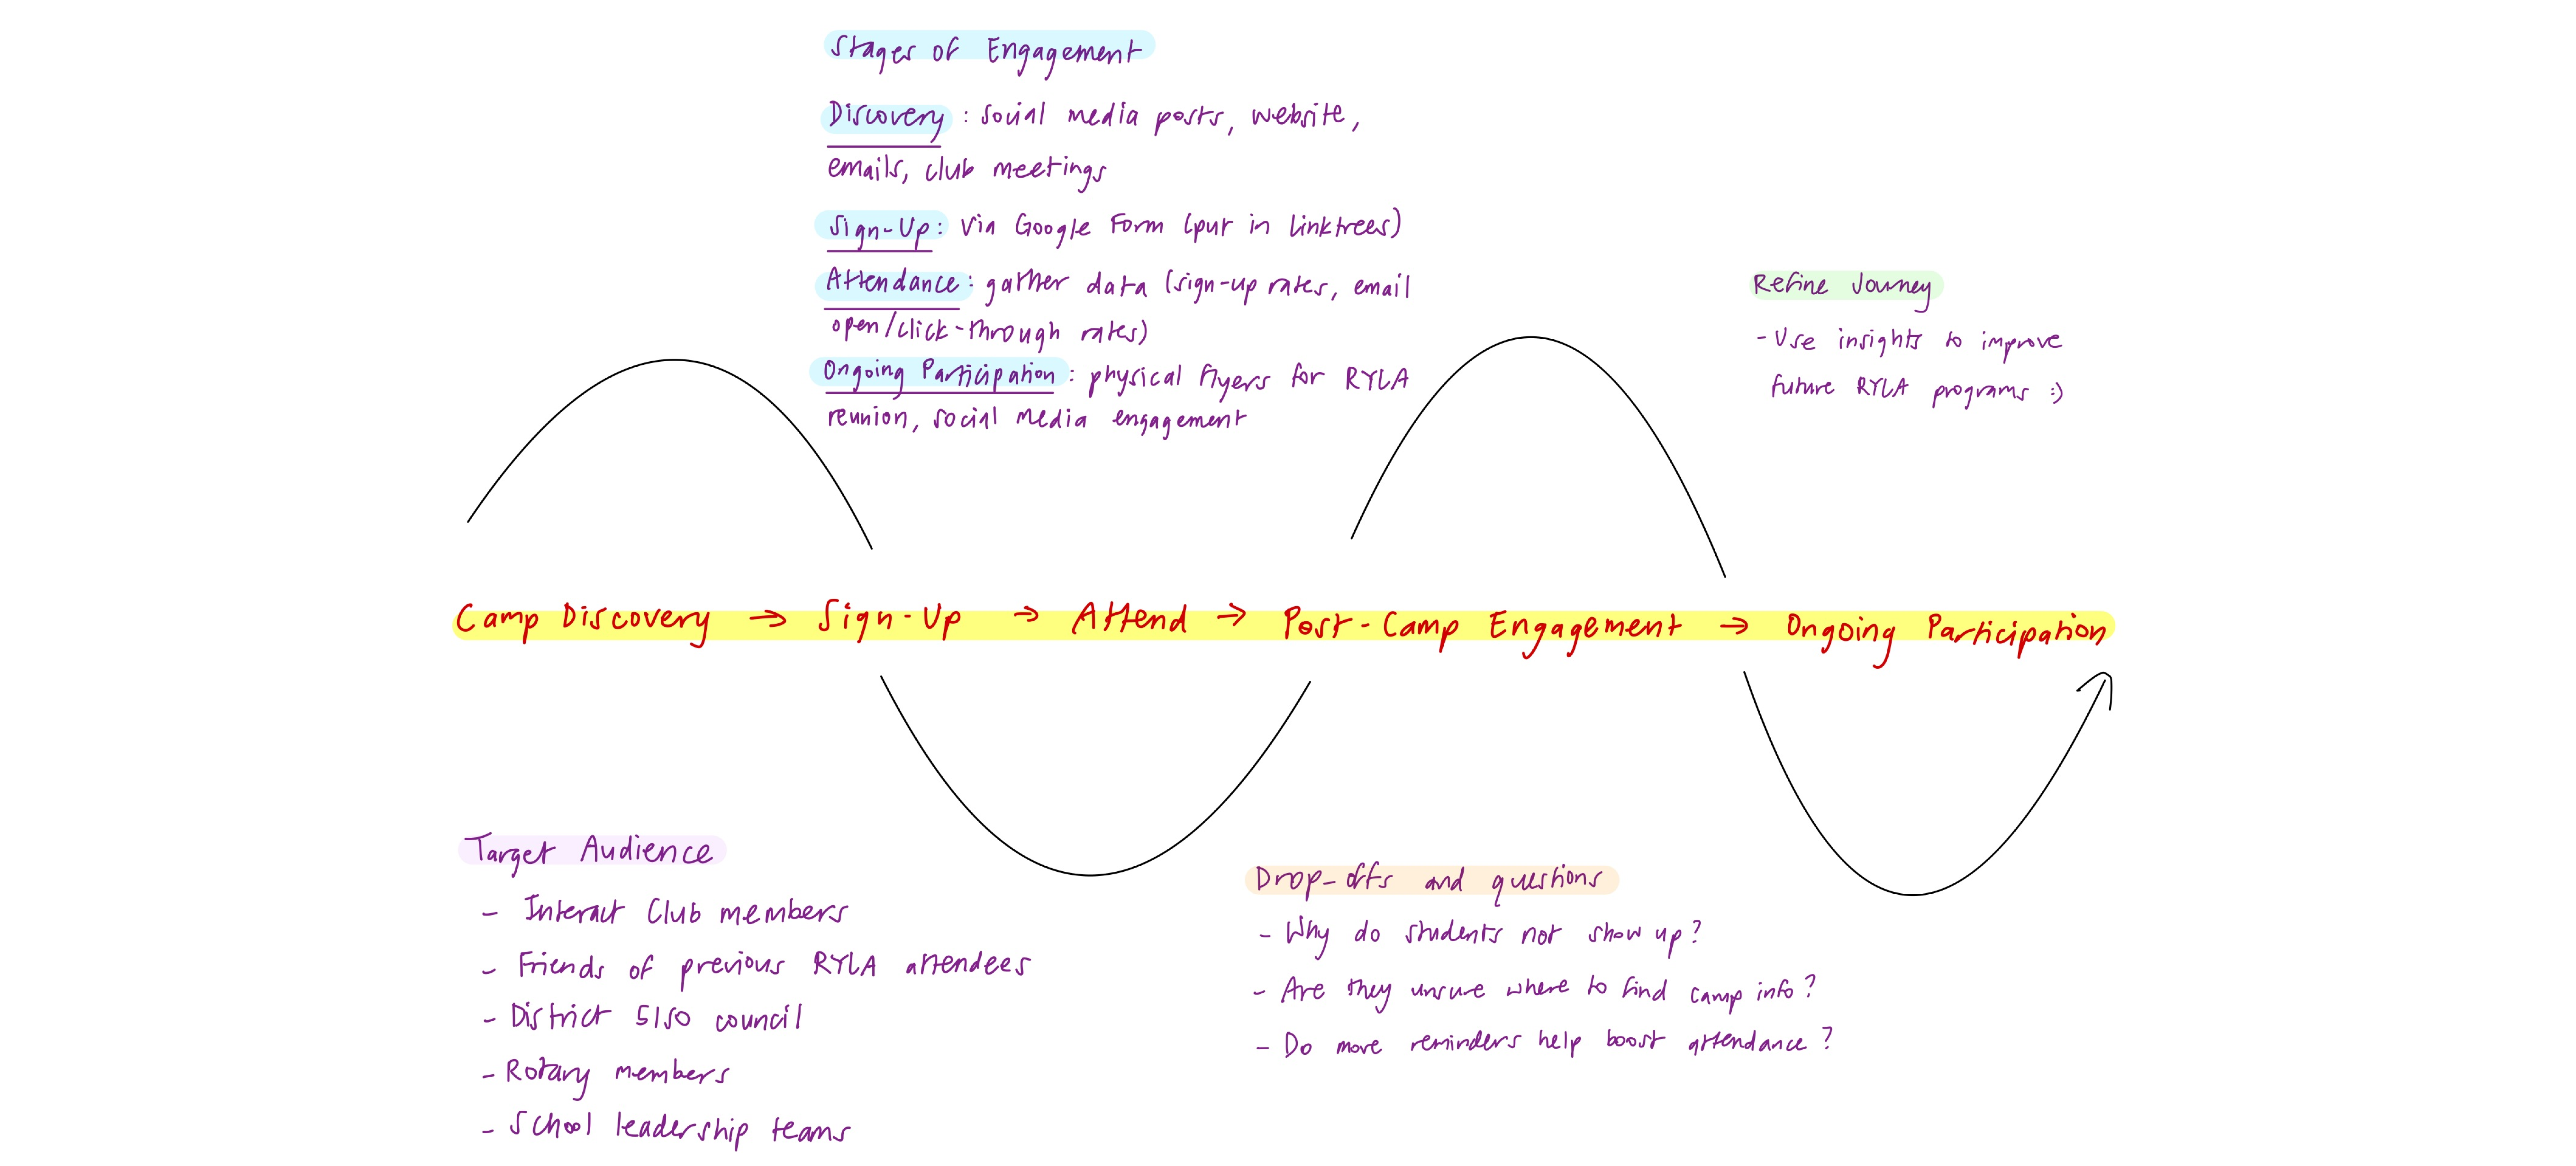 Stages of Engagement
Discovery : social media posts, website,
emails, club meetings
Sign-Up: via Google Form (put in linktrees)
Attendance: gather data (sign-up rates, email
open/click-through rates)
Ongoing Participation: physical flyers for RYLA
reunion, social media engagement
Refine Journey
- Use insights to improve
future RYLA programs :)
Camp Discovery → Sign-Up → Attend → Post-Camp Engagement → Ongoing Participation
Target Audience
- Interact Club members
- Friends of previous RYLA attendees
- District 5150 council
- Rotary members
- School leadership teams
Drop-offs and questions
- Why do students not show up?
- Are they unsure where to find camp info?
- Do more reminders help boost attendance?